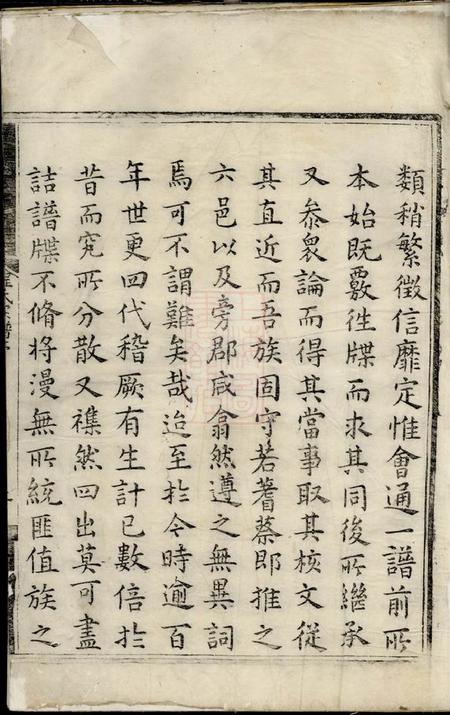 類稍繁徵信靡定惟會通一譜前所
本始既覈徃牒而求其同後所繼承
又叅衆論而得其當事取其核文從
其直近而吾族固守若蓍蔡即推之
六邑以及旁郡咸翕然遵之無異詞
焉可不謂難矣哉迨至扵今時逾百
年世更四代稽厥有生計已數倍扵
昔而究所分散又襍然四出莫可盡
詰譜牒不脩將漫無所統匪值族之